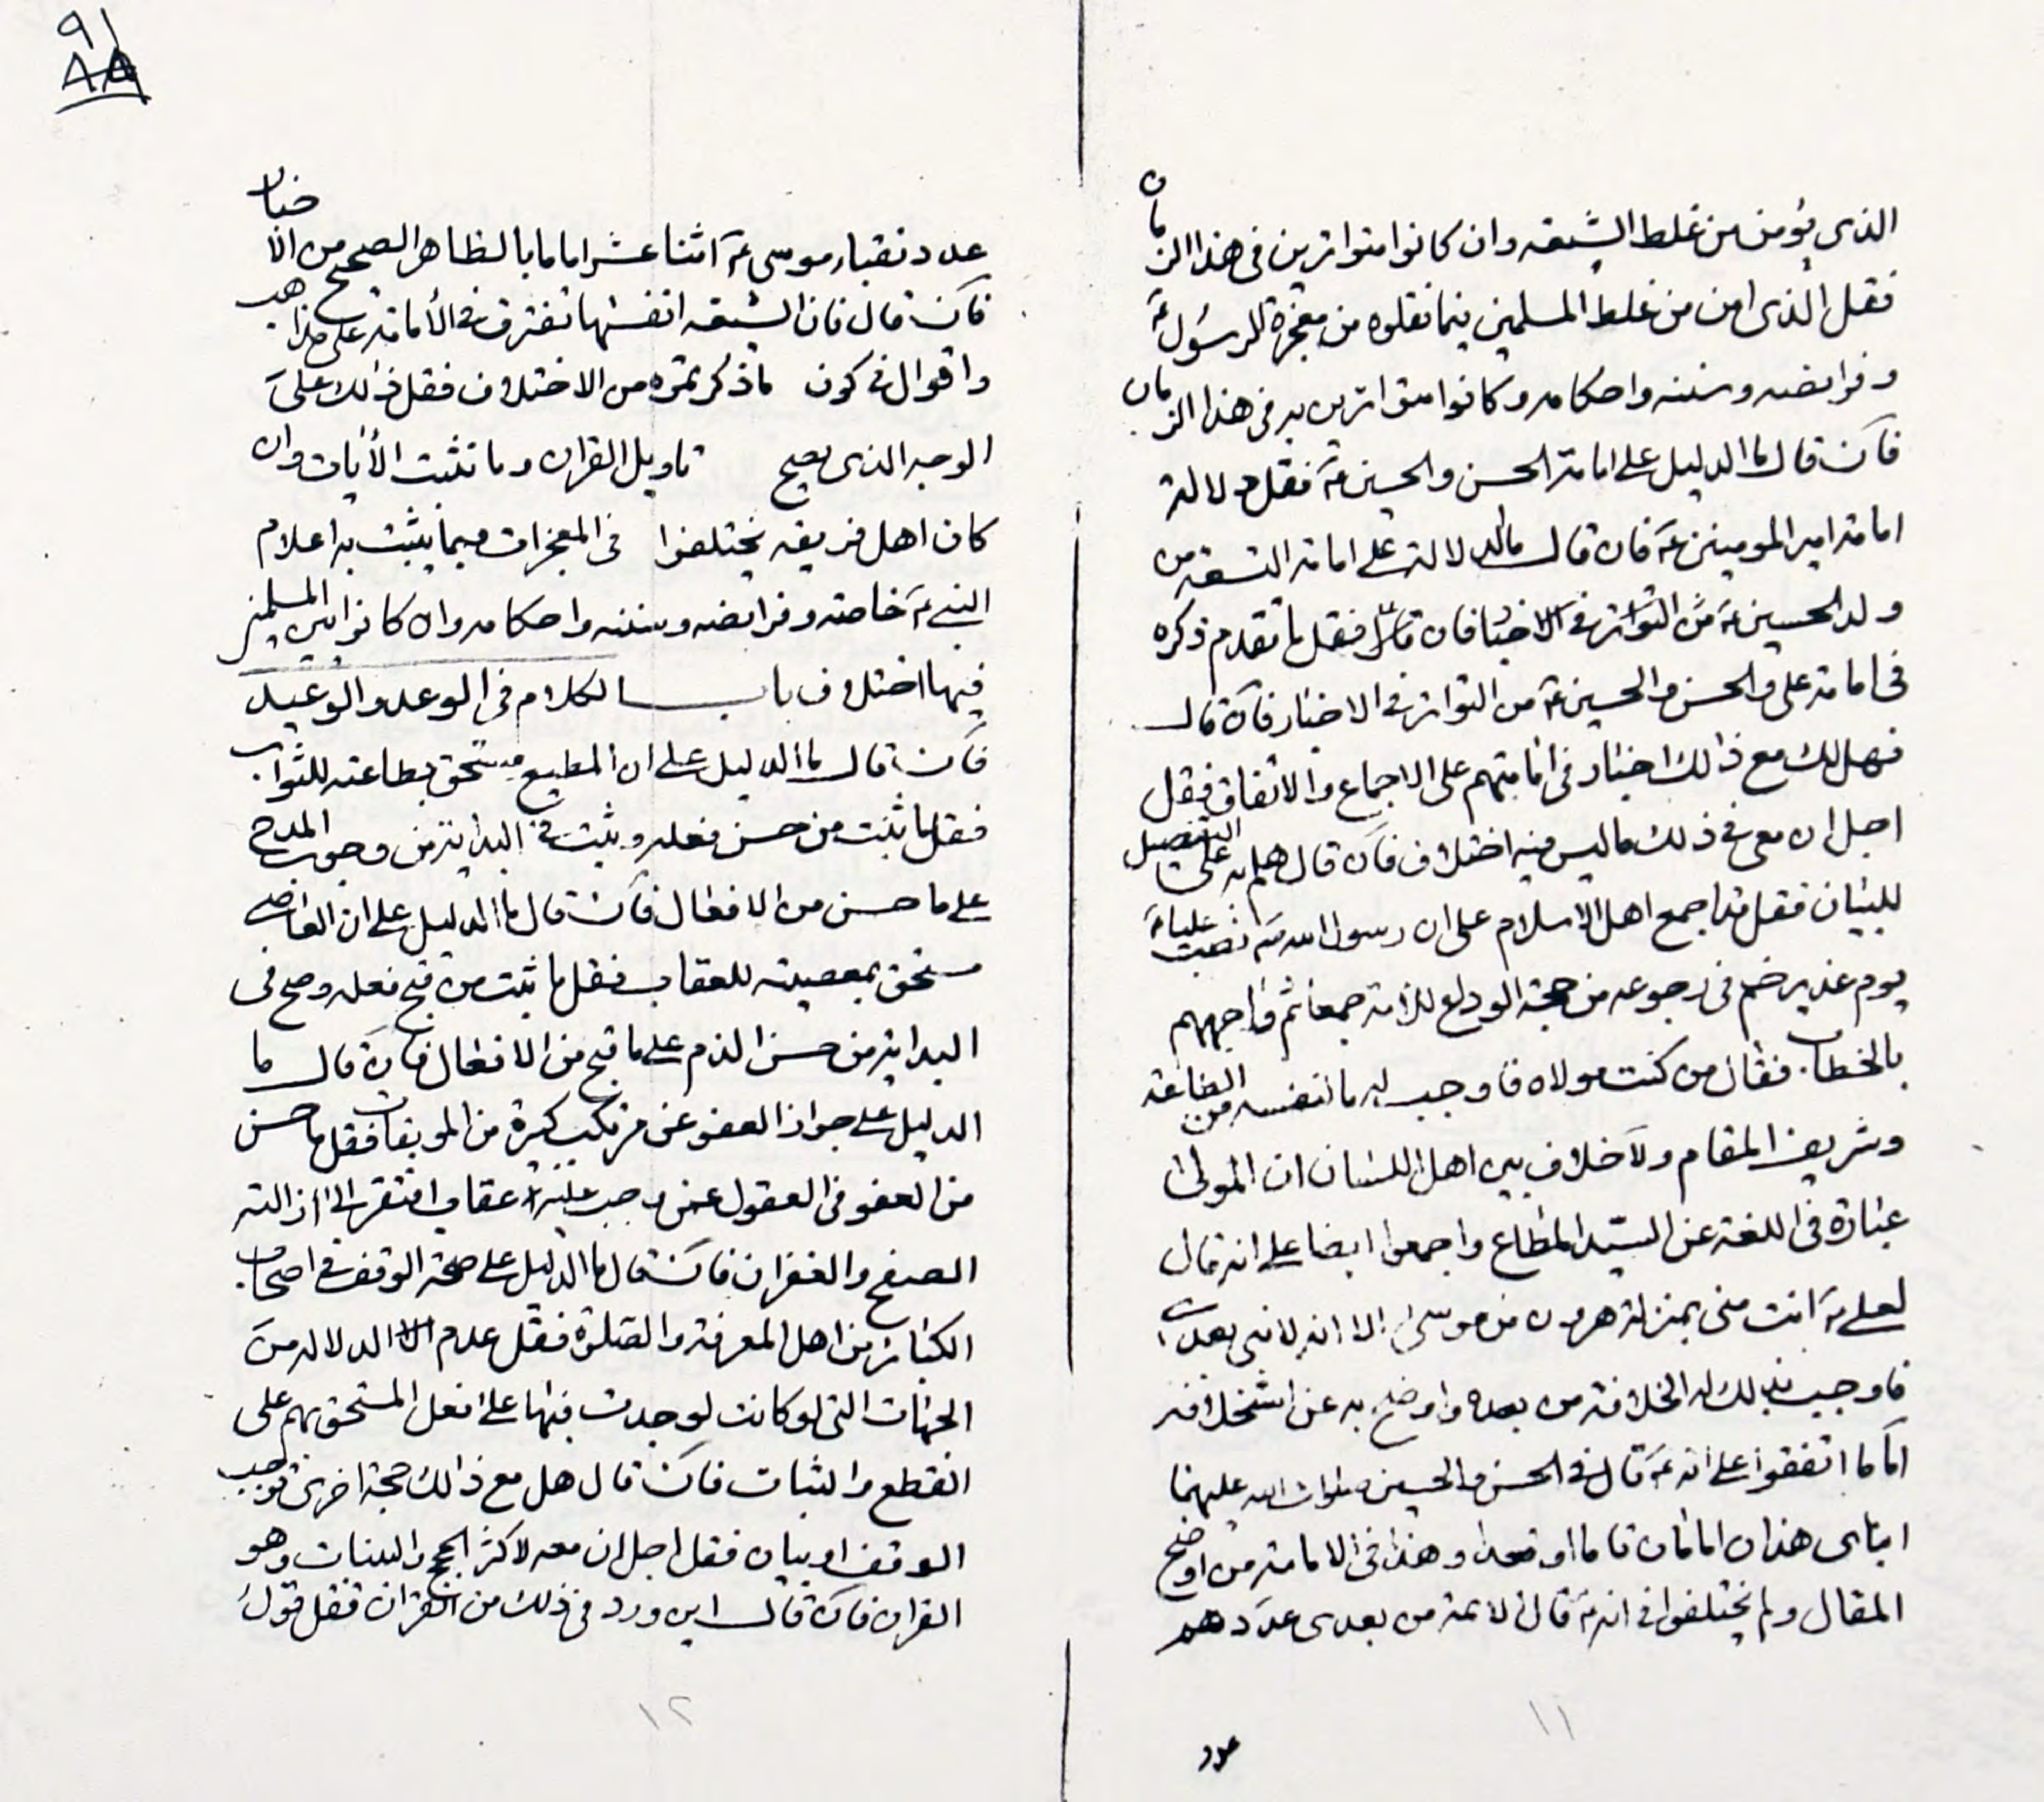 الذى يؤمن من غلط الشيعه وان كانوا متواترين فى هذا الزمان
فقل الذى امن من غلط المسلمين فيما نقلوه من معجزة للرسول ع
وفرايضه وسننه واحكامه وكانوا متواترين به فى هذا الزمان
فان قال ما الدليل على امامة الحسن والحسين ع فقل دلالة
امامة امير المومنين ع فان قال ما الدلالة على امامة التسعه من
ولد الحسين ع من التواتر فى الاخبار فان قال فقل ما تقدم ذكره
فى امامة على والحسن والحسين ع من التواتر فى الاخبار فان قال
فهل لك مع ذلك اخبار فى امامتهم على الاجماع والاتفاق فقل
اجل ان معى فى ذلك ما ليس فيه اختلاف فان قال هلم به على التفصيل
للبيان فقل قد اجمع اهل الاسلام على ان رسول الله ص نصب عليا ع
يوم غدير خم فى رجوعه من حجة الوداع للامة جمعا ثم واجههم
بالخطاب فقال من كنت مولاه فاوجب له ما لنفسه من الطاعة
وشريف المقام ولا خلاف بين اهل اللسان ان المولى
عبارة فى اللغة عن السيد المطاع واجمعوا ايضا على انه قال
لعلى ع انت منى بمنزلة هرون من موسى الا انه لا نبى بعدى
فاوجب بذلك له الخلافة من بعده واوضح به عن استخلافه
كما اتفقوا على انه ع قال فى الحسن والحسين صلوات الله عليهما
ابناى هذان امامان قاما او قعدا وهذا فى الامامة من اوضح
المقال ولم يختلفوا فى انه ع قال الائمة من بعدى عددهم
١١
عدد
٩١
٨٩
عدد نقباء موسى ع اثنا عشر اماما بالظاهر الصحيح من الاخبار
فان قال فان الشيعه انفسها تفترق فى الامامة على مذاهب
واقوال فى كون ما ذكرتموه من الاختلاف فقل ذلك على
الوجه الذى يصح تاويل القران وما تثبت الايات وان
كان اهل فريقه يختلفوا فى المعجزات فيما يثبت به اعلام
النبى ع خاصة وفرايضه وسننه واحكامه وان كانوا بين المسلمين
فيها اختلاف باب الكلام فى الوعد والوعيد
فان قال ما الدليل على ان المطيع مستحق بطاعته للثواب
فقل ما ثبت من حسن فعله وثبت فى البداية من وجوب المدح
على ما حسن من الافعال فان قال ما الدليل على ان العاصى
مستحق بمعصيته للعقاب فقل ما ثبت من قبح فعله وصح فى
البداية من حسن الذم على ما قبح من الافعال فان قال ما
الدليل على جواز العفو عن مرتكب كبيرة من الموبقات فقل ما حسن
من العفو فى العقول عمن وجب عليه عقاب وافتقر الى ازالته
الصفح والغفران فان قال ما الدليل على صحة الوقف فى اصحاب
الكبائر من اهل المعرفة والصلوة فقل عدم الدلالة من
الجهات التى لو كانت لوجدت فيها على فعل المستحق بهم على
القطع والثبات فان قال هل مع ذلك حجة اخرى توجب
الوقف او بيان فقل اجل ان معه لاكثر الحجج والبينات وهو
القران فان قال اين ورد فى ذلك من القران فقل قول
١٢